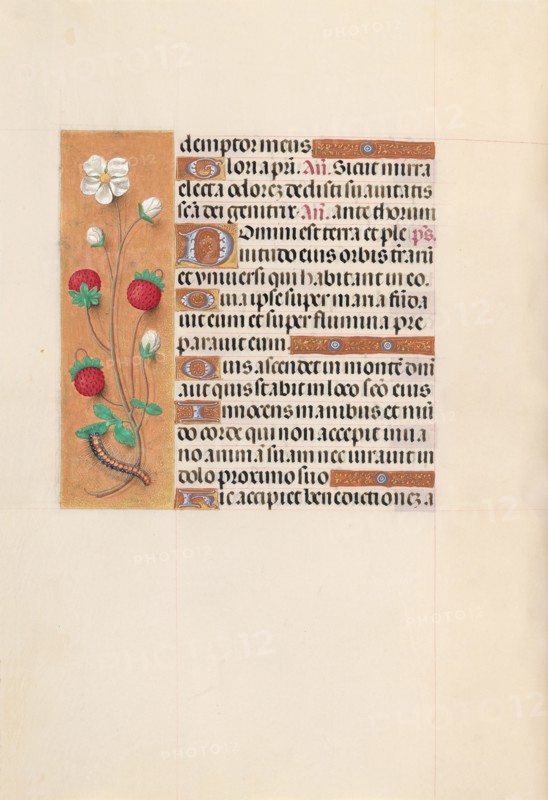 demptor meus
Gloria pri. An. Sicut mirra
electa odorez dedisti suauitatis
scā dei genitrix. An. ante thorum
Domini est terra et ple ps.
nitudo eius orbis trārū
et vniuersi qui habitant in eo.
Quia ipse super maria fūda
uit eum et super flumina pre
parauit eum.
Quis ascendet in montē dnī
aut quis stabit in loco scō eius
Innocens manibus et mū
do corde qui non accepit in ua
no animā suam nec iurauit in
dolo proximo suo
Hic accipiet benedictionez a
PHOTO12